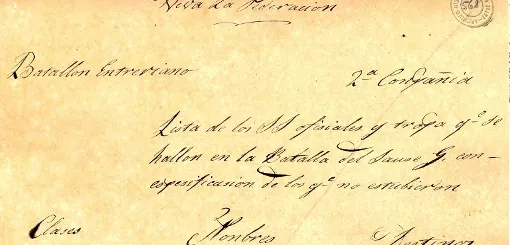 Viva La Federacion
Batallon Entreriano
2.ª Compañia
Lista de los SS ofisiales y tropa q.e se
hallon en la Batalla del Sause G. con-
espesificasion de los q.e no estubieron
Clases Nonbres Destinos